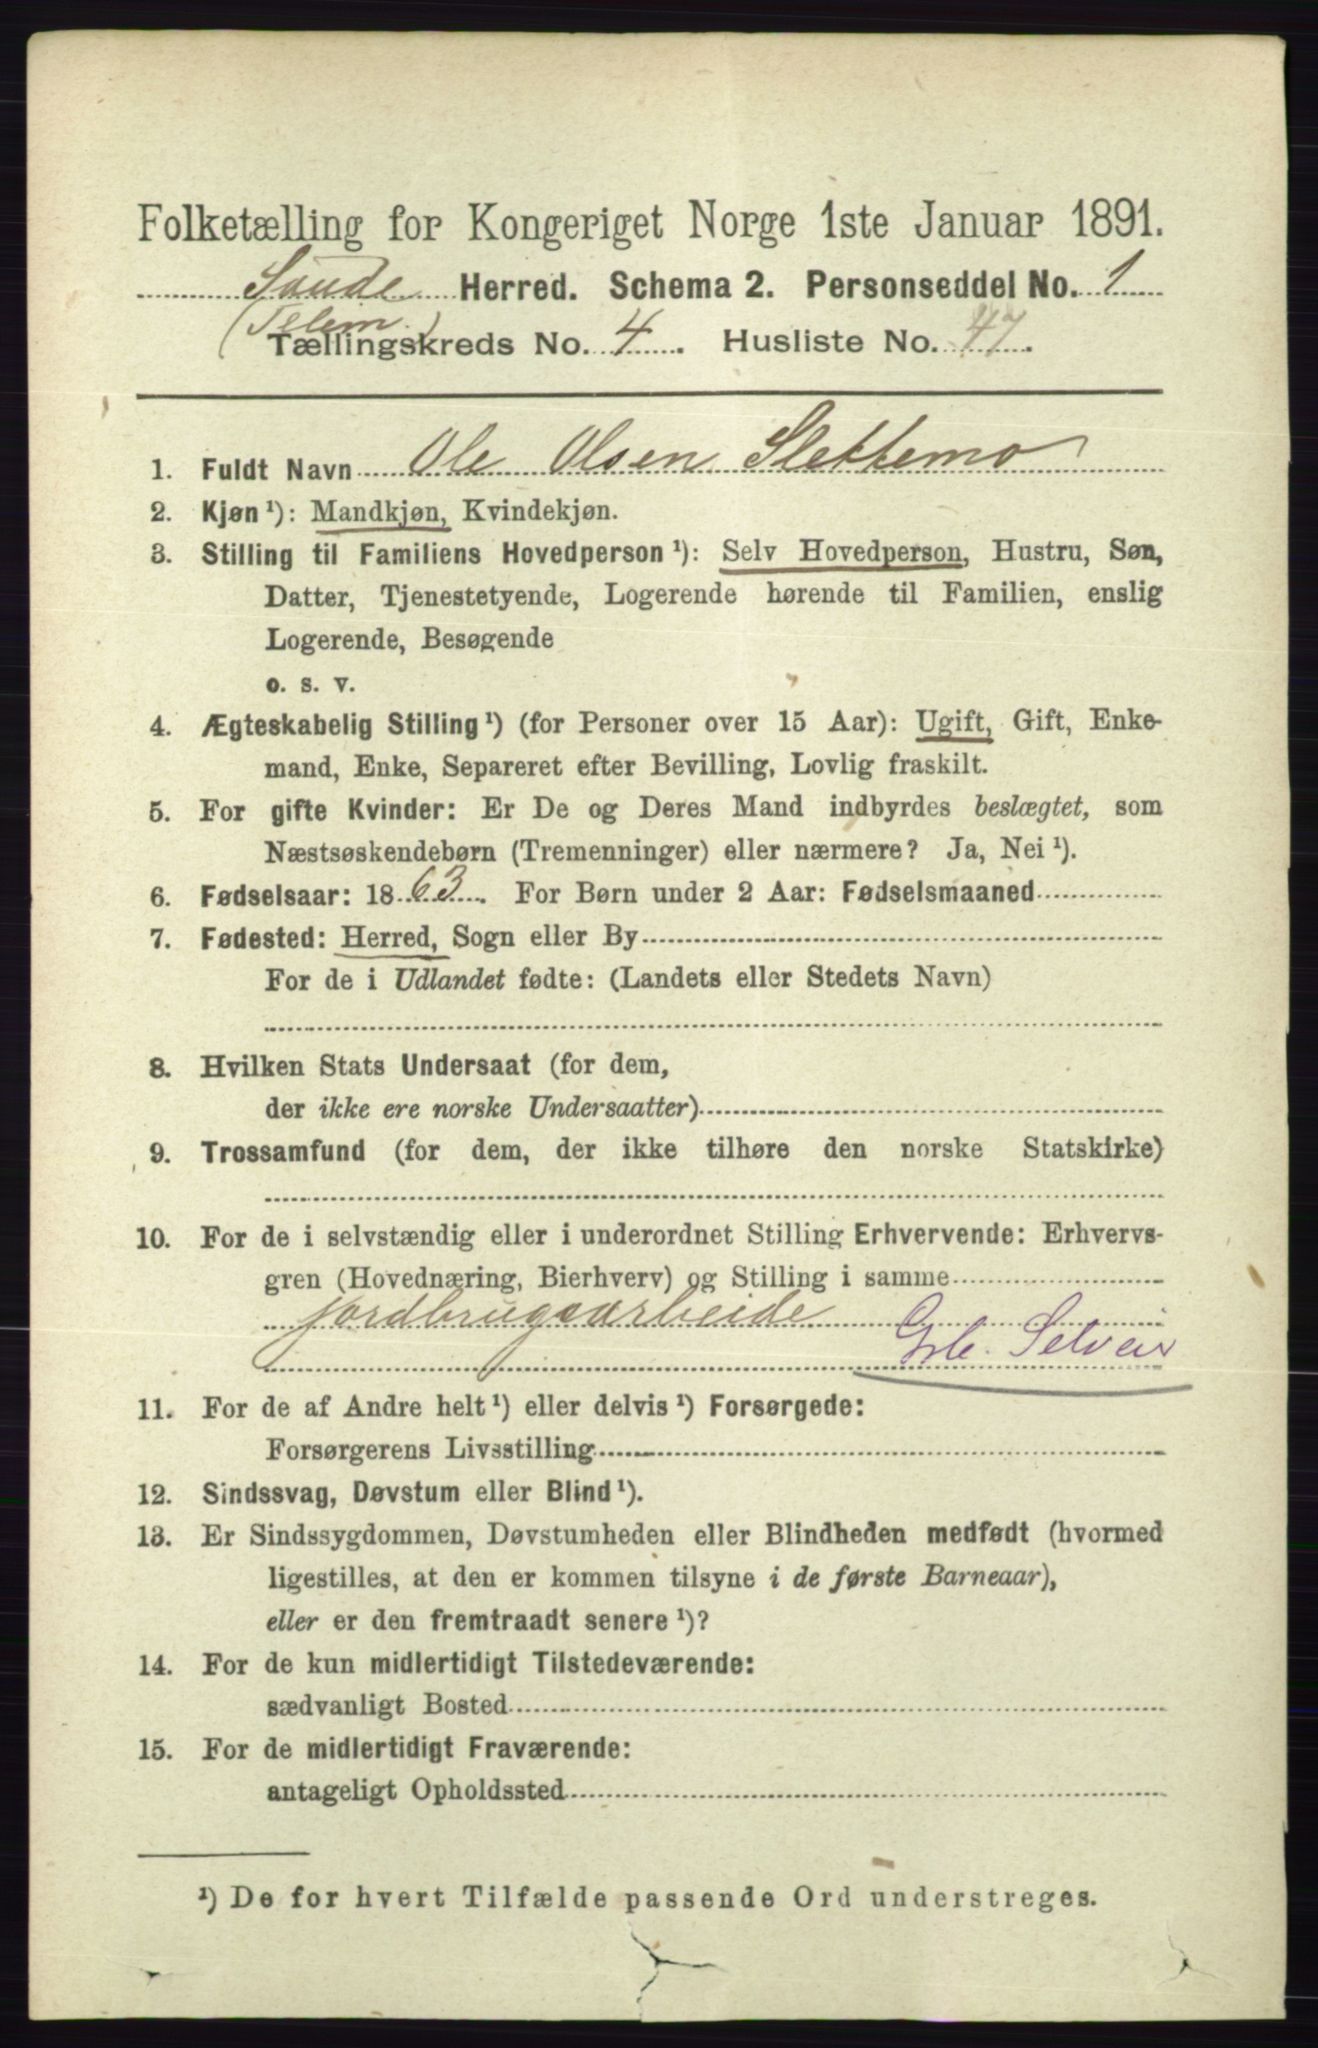 Folketælling for Kongeriget Norge 1ste Januar 1891.
Saude Herred. Schema 2. Personseddel No. 1
(Telem.)
Tællingskreds No. 4. Husliste No. 47.
1. Fuldt Navn Ole Olsen Slettemo
2. Kjøn ¹): Mandkjøn, Kvindekjøn.
3. Stilling til Familiens Hovedperson ¹): Selv Hovedperson, Hustru, Søn,
Datter, Tjenestetyende, Logerende hørende til Familien, enslig
Logerende, Besøgende
o. s. v.
4. Ægteskabelig Stilling ¹) (for Personer over 15 Aar): Ugift, Gift, Enke-
mand, Enke, Separeret efter Bevilling, Lovlig fraskilt.
5. For gifte Kvinder: Er De og Deres Mand indbyrdes beslægtet, som
Næstsøskendebørn (Tremenninger) eller nærmere? Ja, Nei ¹).
6. Fødselsaar: 1863. For Børn under 2 Aar: Fødselsmaaned
7. Fødested: Herred, Sogn eller By
For de i Udlandet fødte: (Landets eller Stedets Navn)
8. Hvilken Stats Undersaat (for dem,
der ikke ere norske Undersaatter)
9. Trossamfund (for dem, der ikke tilhøre den norske Statskirke)
10. For de i selvstændig eller i underordnet Stilling Erhvervende: Erhvervs-
gren (Hovednæring, Bierhverv) og Stilling i samme
jordbrugsarbeide
Selveier
11. For de af Andre helt ¹) eller delvis ¹) Forsørgede:
Forsørgerens Livsstilling
12. Sindssvag, Døvstum eller Blind ¹).
13. Er Sindssygdommen, Døvstumheden eller Blindheden medfødt (hvormed
ligestilles, at den er kommen tilsyne i de første Barneaar),
eller er den fremtraadt senere ¹)?
14. For de kun midlertidigt Tilstedeværende:
sædvanligt Bosted
15. For de midlertidigt Fraværende:
antageligt Opholdssted
¹) De for hvert Tilfælde passende Ord understreges.